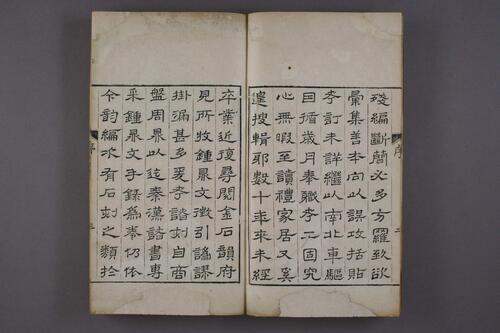 殘編斷簡必多方羅致欲
彙集善本向以誤攻括貼
考訂未詳繼以南北車驅
因循歲月奉職考工固究
心無暇至讀禮家居又奚
遑搜輯耶數十年來未經
序
二
卒業近復尋閱金石韻府
見所收鍾鼎文徵引譌謬
掛漏甚多爰考諸刻自商
盤周鼎以迄秦漢諸書專
采鍾鼎文手錄為仍依
今韵編次有石刻之類於
序